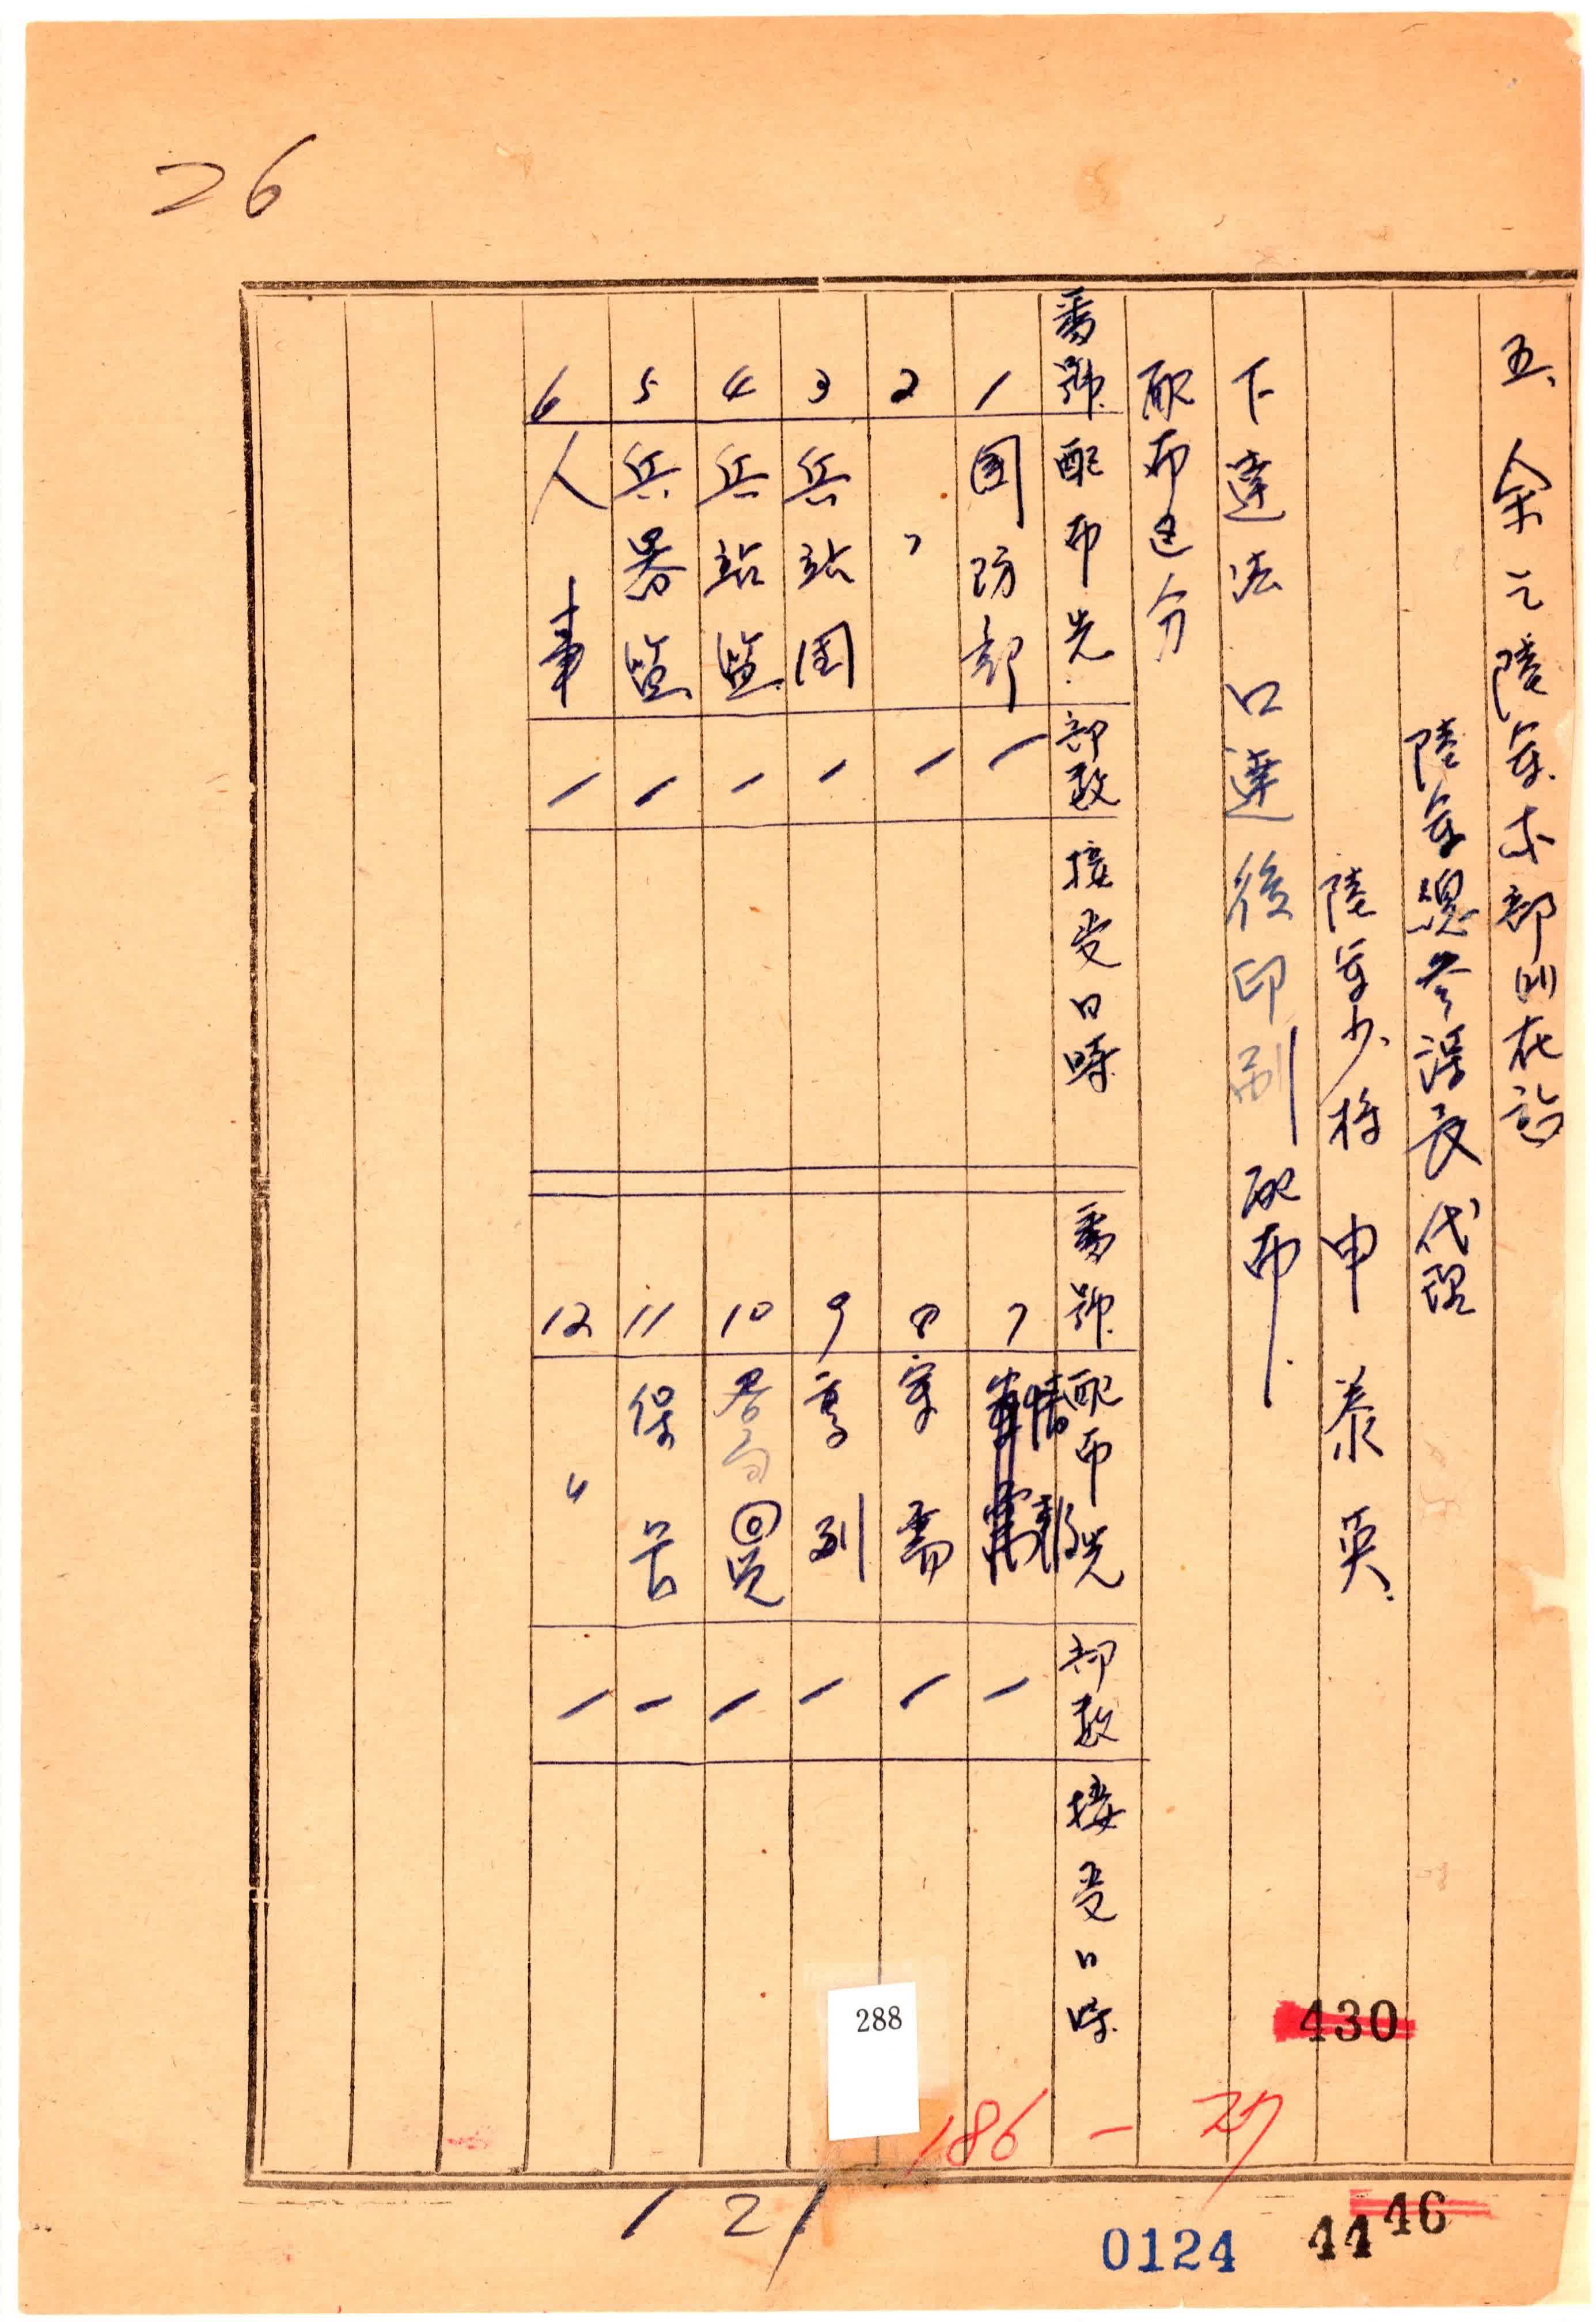 26
五、余는陸軍本部에在함
陸軍總參謀長代理
陸軍少將 申泰英
下達法 口達後印刷配布
配布區分
番號 配布先 部數 接受日時
1 國防部 一
2 〃 一
3 兵站局 一
4 兵站監 一
5 兵器監 一
6 人事 一
番號 配布先 部數 接受日時
7 情報 一
8 軍需 一
9 一
10 一
11 一
12 〃 一
288
430
186 - 27
121
0124
44
46